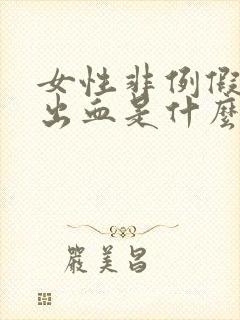 女性非例假
出血是什麼
嚴美昌